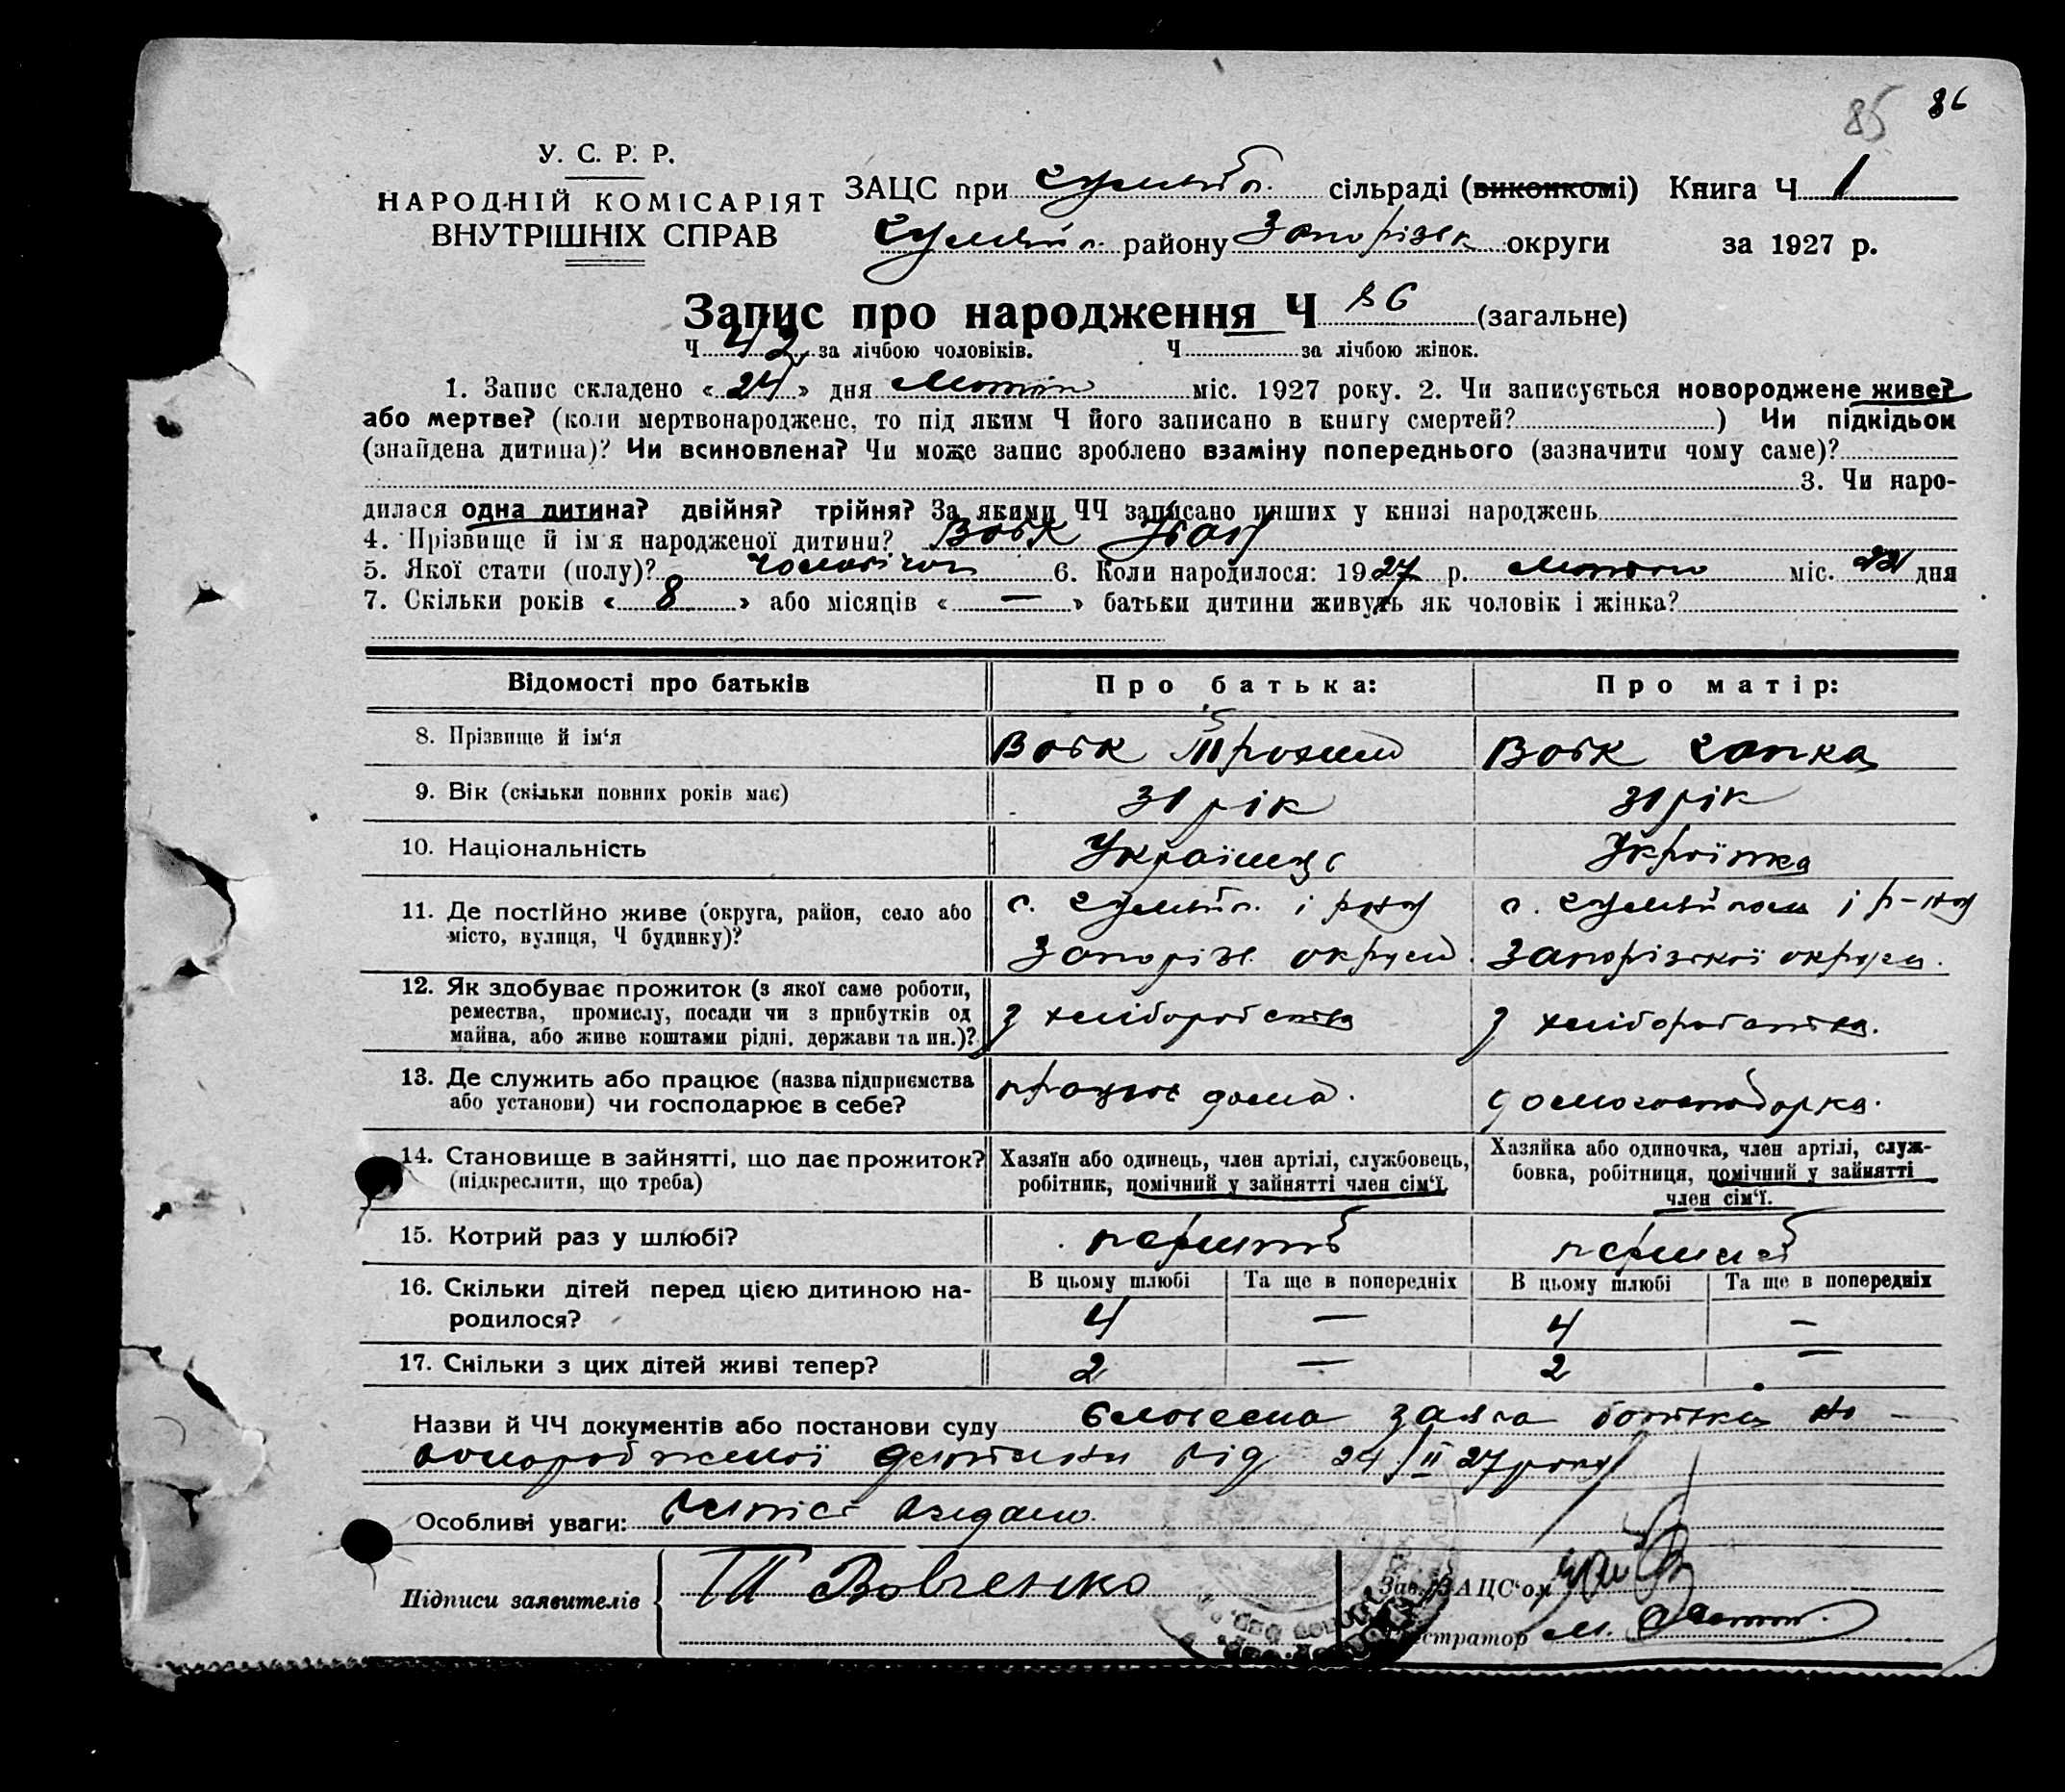 85 86
У. С. Р. Р.
НАРОДНІЙ КОМІСАРІЯТ
ВНУТРІШНІХ СПРАВ
ЗАЦС при сільраді (виконкомі) Книга Ч 1
району Запорізьк округи за 1927 р.
Запис про народження Ч 86 (загальне)
Ч 42 за лічбою чоловіків. Ч за лічбою жінок.
1. Запис складено « 24 » дня міс. 1927 року. 2. Чи записується новороджене живе?
або мертве? (коли мертвонароджене, то під яким Ч його записано в книгу смертей? ) Чи підкідьок
(знайдена дитина)? Чи всиновлена? Чи може запис зроблено взаміну попереднього (зазначити чому саме)?
3. Чи наро-
дилася одна дитина? двійня? трійня? За якими ЧЧ записано инших у книзі народжень
4. Прізвище й ім'я народженої дитини? Вовк Іван
5. Якої стати (полу)? чоловічої 6. Коли народилося: 1927 р. міс. дня
7. Скільки років « 8 » або місяців « — » батьки дитини живуть як чоловік і жінка?
Відомості про батьків Про батька: Про матір:
8. Прізвище й ім'я Вовк Трохим Вовк Ганка
9. Вік (скільки повних років має) 31 рік 31 рік
10. Національність Українець Українка
11. Де постійно живе (округа, район, село або
місто, вулиця, Ч будинку)?
с. і р-ну с. і р-ну
Запорізь. округи. Запорізької округи.
12. Як здобуває прожиток (з якої саме роботи,
ремества, промислу, посади чи з прибутків од
майна, або живе коштами рідні, держави та ин.)?
з хліборобства з хліборобства.
13. Де служить або працює (назва підприємства
або установи) чи господарює в себе?
працює дома. домогосподарка.
14. Становище в зайнятті, що дає прожиток?
(підкреслити, що треба)
Хазяїн або одинець, член артілі, службовець,
робітник, помічний у зайнятті член сім'ї.
Хазяйка або одиночка, член артілі, служ-
бовка, робітниця, помічний у зайнятті
член сім'ї.
15. Котрий раз у шлюбі? перший перший
16. Скільки дітей перед цією дитиною на-
родилося?
В цьому шлюбі Та ще в попередніх В цьому шлюбі Та ще в попередніх
4 — 4 —
17. Скільки з цих дітей живі тепер? 2 — 2 —
Назви й ЧЧ документів або постанови суду словесна заява батька но-
вонародженої дитини від 24/II 27 року
Особливі уваги: випись видано.
Підписи заявителів Т Вовченко
Зав. ЗАЦС'ом
Реєстратор М.